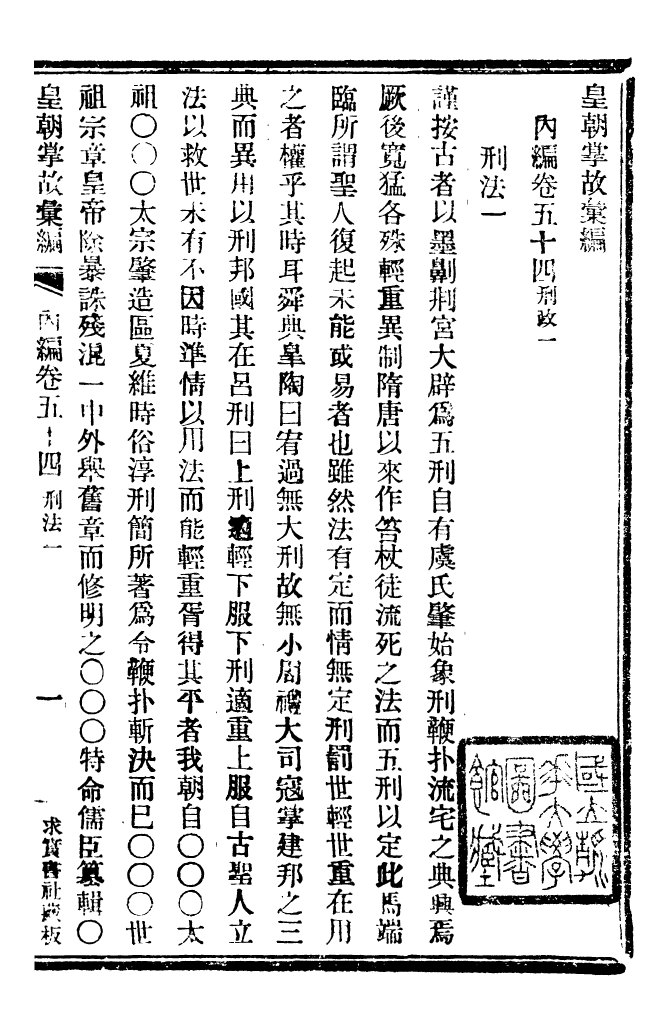 皇朝掌故彙編
內編卷五十四刑政一
刑法一
謹按古者以墨劓剕宮大辟爲五刑自有虞氏肇始象刑鞭扑流宅之典興焉
厥後寬猛各殊輕重異制隋唐以來作笞杖徒流死之法而五刑以定此馬端
臨所謂聖人復起未能或易者也雖然法有定而情無定刑罰世輕世重在用
之者權乎其時耳舜典皐陶曰宥過無大刑故無小周禮大司寇掌建邦之三
典而異用以刑邦國其在呂刑曰上刑適輕下服下刑適重上服自古聖人立
法以救世未有不因時準情以用法而能輕重胥得其平者我朝自〇〇〇太
祖〇〇〇太宗肇造區夏維時俗淳刑簡所著爲令鞭扑斬決而已〇〇〇世
祖宗章皇帝除暴誅殘混一中外與舊章而修明之〇〇〇特命儒臣纂輯〇
皇朝掌故彙編 內編卷五十四 刑法一 一 求實書社藏板
國立清華大學圖書館藏